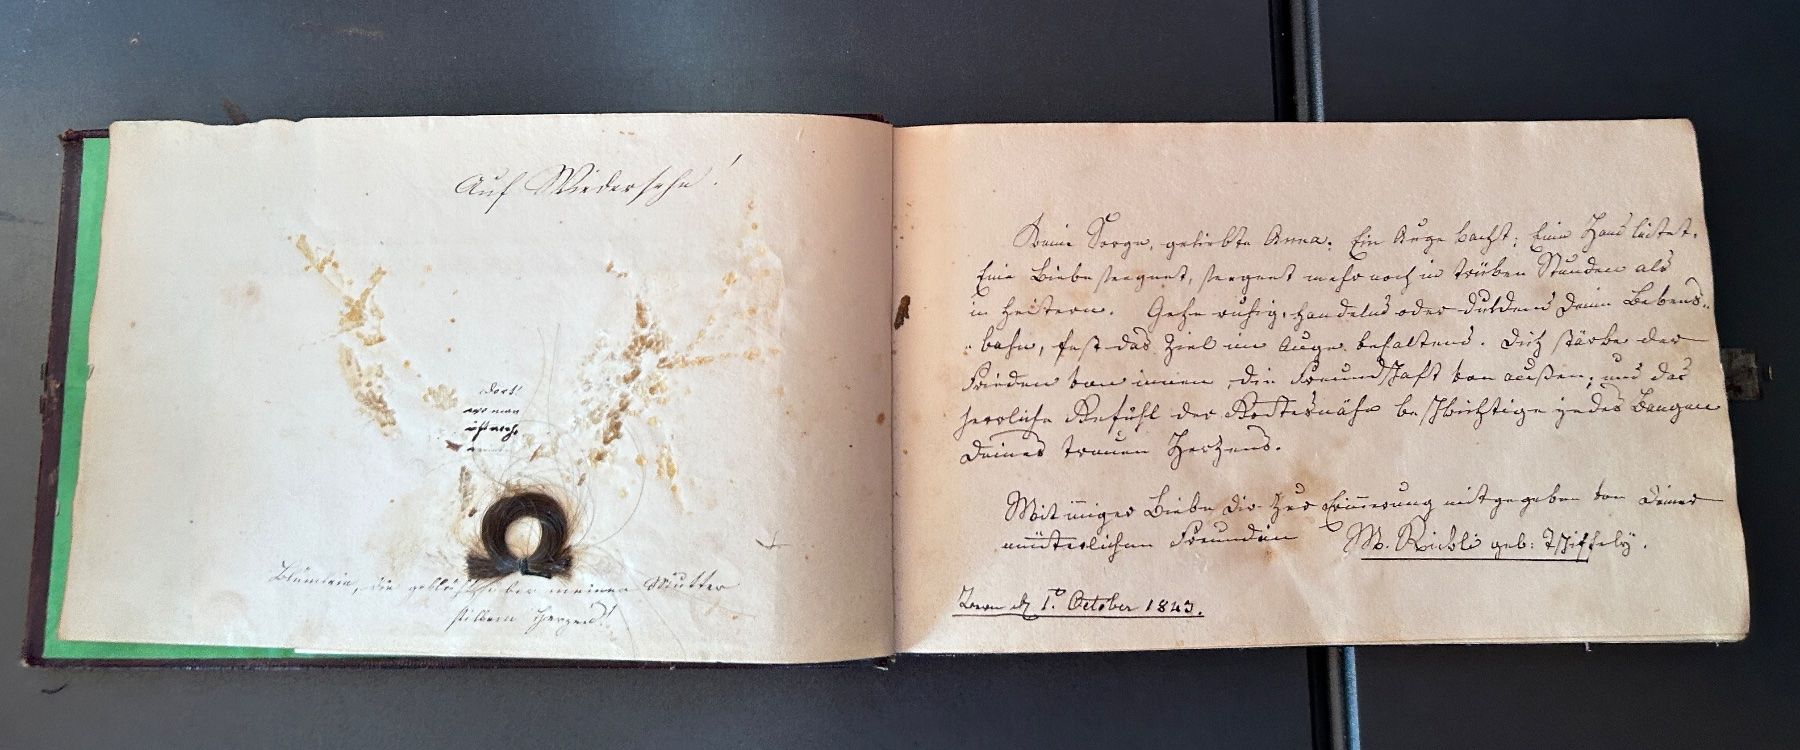 Auf Wiedersehn!
dort!
wo man
nicht mehr
Blümlein, die geblüht über meiner Mutter
stillem Herzen!
Keine Sorge, geliebte Anna. Ein Auge wacht; Eine Hand leitet.
Eine Liebe seegnet, seegnet mehr noch in trüben Stunden als
in heitern. Gehe ruhig, handelnd oder duldend Deine Lebens-
-bahn, fest das Ziel im Auge behaltend. Dich stärke der
Frieden von innen, die Freundschaft von außen; und das
herrliche Gefühl der Gottesnähe beschwichtige jedes Bangen
Deines treuen Herzens.
Mit inniger Liebe Dir zur Erinnerung mitgegeben von Deiner
mütterlichen Freundin M. Rickli geb: Tschiffely.
Bern d. 1. October 1843.